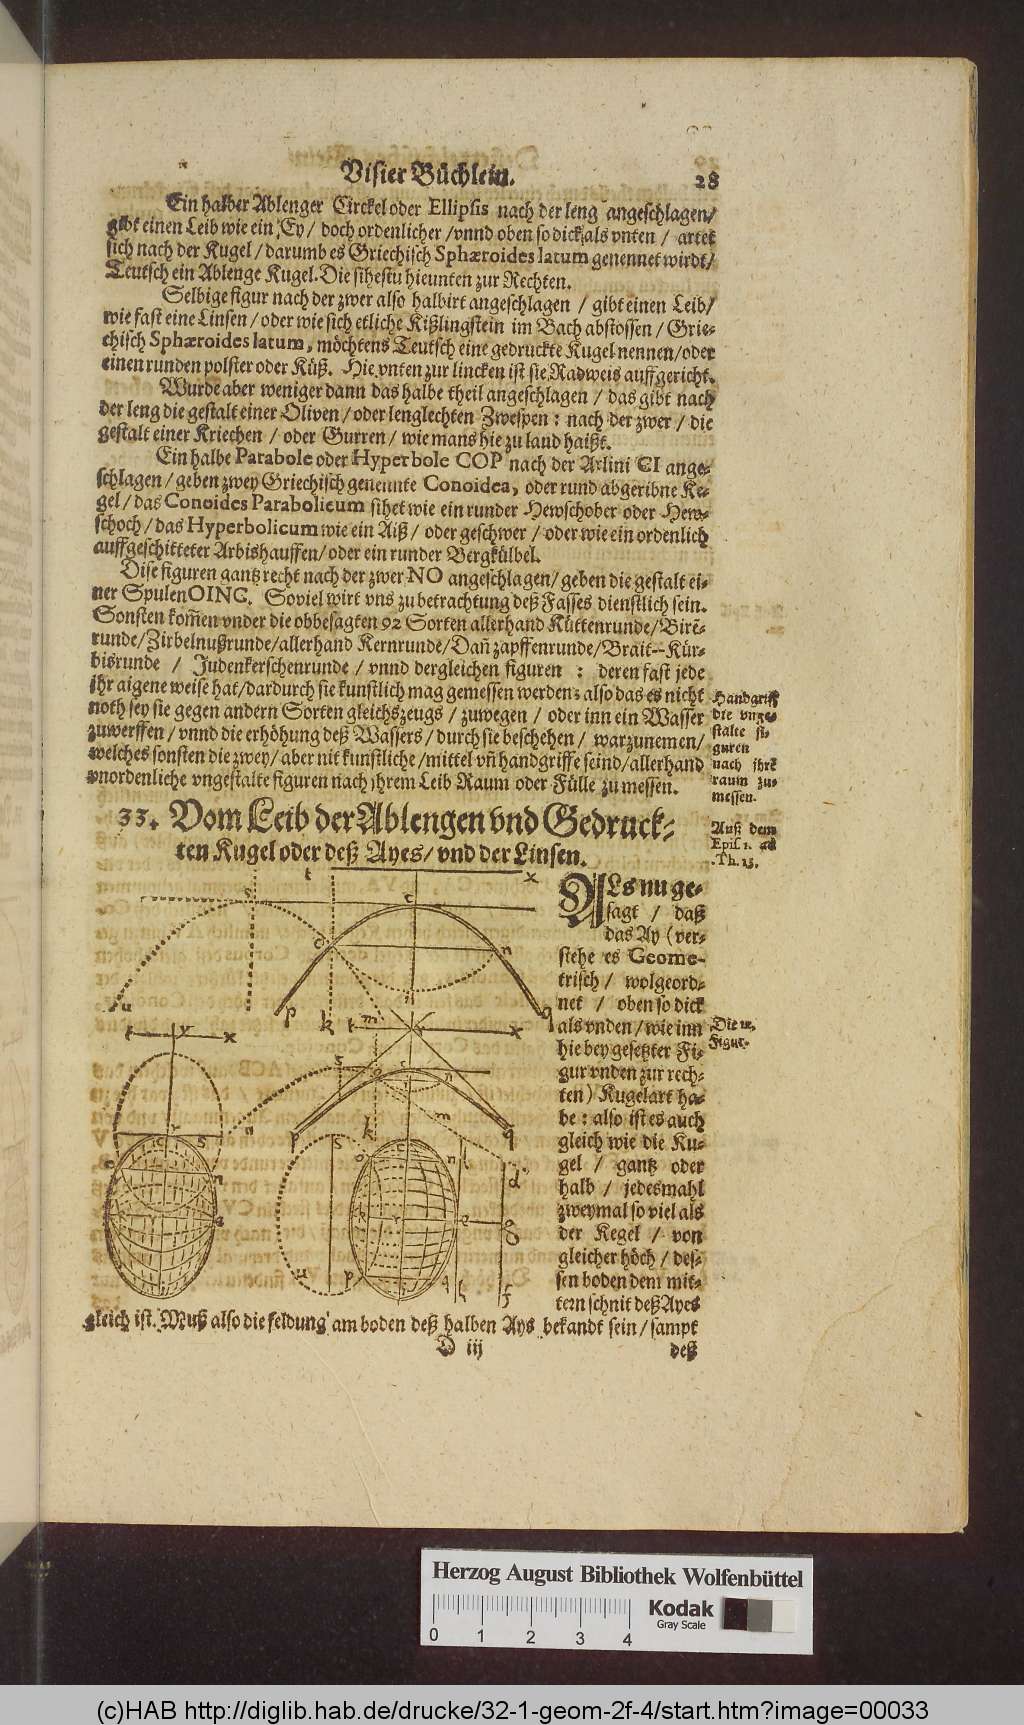 Visier Büchlein.
28
Ein halber Ablenger Circkel oder Ellipsis nach der leng angeschlagen/
gibt einen Leib wie ein Ey/ doch ordenlicher/ vnnd oben so dick als vnten/ artet
sich nach der Kugel/ darumb es Griechisch Sphæroides latum genennet wirdt/
Teutsch ein Ablenge Kugel. Die sihestu hieunten zur Rechten.
Selbige figur nach der zwer also halbirt angeschlagen/ gibt einen Leib/
wie fast eine Linsen/ oder wie sich etliche Kißlingstein im Bach abstossen/ Grie-
chisch Sphæroides latum, möchtens Teutsch eine gedruckte Kugel nennen/ oder
einen runden polster oder Küß. Hie vnten zur lincken ist sie Radweis auffgericht.
Wurde aber weniger dann das halbe theil angeschlagen/ das gibt nach
der leng die gestalt einer Oliven/ oder lenglechten Zwespen: nach der zwer/ die
gestalt einer Kriechen/ oder Gurren/ wie mans hie zu land haißt.
Ein halbe Parabole oder Hyperbole COP nach der Axlini CI ange-
schlagen/ geben zwey Griechisch genennte Conoidea, oder rund abgeribne Ke-
gel/ das Conoides Parabolicum sihet wie ein runder Hewschober oder Hew-
schoch/ das Hyperbolicum wie ein Aiß/ oder geschwer/ oder wie ein ordenlich
auffgeschitteter Arbishauffen/ oder ein runder Bergkülbel.
Dise figuren gantz recht nach der zwer NO angeschlagen/ geben die gestalt ei-
ner Spulen OINC. Soviel wirt vns zu betrachtung deß Fasses dienstlich sein.
Sonsten kom̃en vnder die obbesagten 92 Sorten allerhand Küttenrunde/ Birẽ-
runde/ Zirbelnußrunde/ allerhand Kernrunde/ Dañzapffenrunde/ Brait-Kür-
bisrunde/ Judenkerschenrunde/ vnnd dergleichen figuren: deren fast jede
ihr aigene weise hat/ dardurch sie kunstlich mag gemessen werden: also das es nicht
noth sey sie gegen andern Sorten gleichszeugs/ zuwegen/ oder inn ein Wasser
zuwerffen/ vnnd die erhöhung deß Wassers/ durch sie beschehen/ warzunemen/
welches sonsten die zwey/ aber nit kunstliche/ mittel vñ handgriffe seind/ allerhand
vnordenliche vngestalte figuren nach jhrem Leib Raum oder Fülle zu messen.
Handgriff
die vnge-
stalte fi-
guren
nach jhrẽ
raum zu-
messen.
33. Vom Leib der Ablengen vnd Gedruck-
ten Kugel oder deß Ayes/ vnd der Linsen.
Auß dem
Epis. 1. ad
Th. 23.
ALs nu ge-
sagt/ daß
das Ay (ver-
stehe es Geome-
trisch/ wolgeord-
net/ oben so dick
als vnden/ wie inn
hie bey gesetzter Fi-
gur vnden zur rech-
ten) Kugelart ha-
be: also ist es auch
gleich wie die Ku-
gel/ gantz oder
halb/ jedesmahl
zweymal so viel als
der Kegel/ von
gleicher höch/ des-
sen boden dem mit-
tern schnit deß Ayes
Figur.
gleich ist. Muß also die feldung am boden deß halben Ays bekandt sein/ sampt
D iij
deß
t x
s c
o n
u p k i q
t y x
t m x
s o n
u p k q m
c s
o n a
s o c n l d
k r e g
u p q h f
Herzog August Bibliothek Wolfenbüttel
Kodak
Gray Scale
0 1 2 3 4
(c)HAB http://diglib.hab.de/drucke/32-1-geom-2f-4/start.htm?image=00033